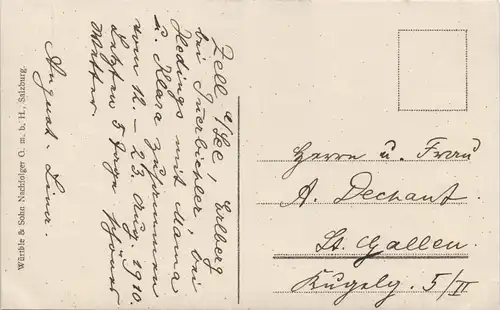 Zell a/See, Erlberg
bei Innerbichler, bei
Hedings mit Mama
u. Klara zusammen
vom 12. – 23. Aug. 1910.
Letzten 5 Tage schönes
Wetter
August. Lina.
Würthle & Sohn Nachfolger G. m. b. H., Salzburg.
Herrn u. Frau
A. Dechant
St. Gallen
Kugelg. 5/II